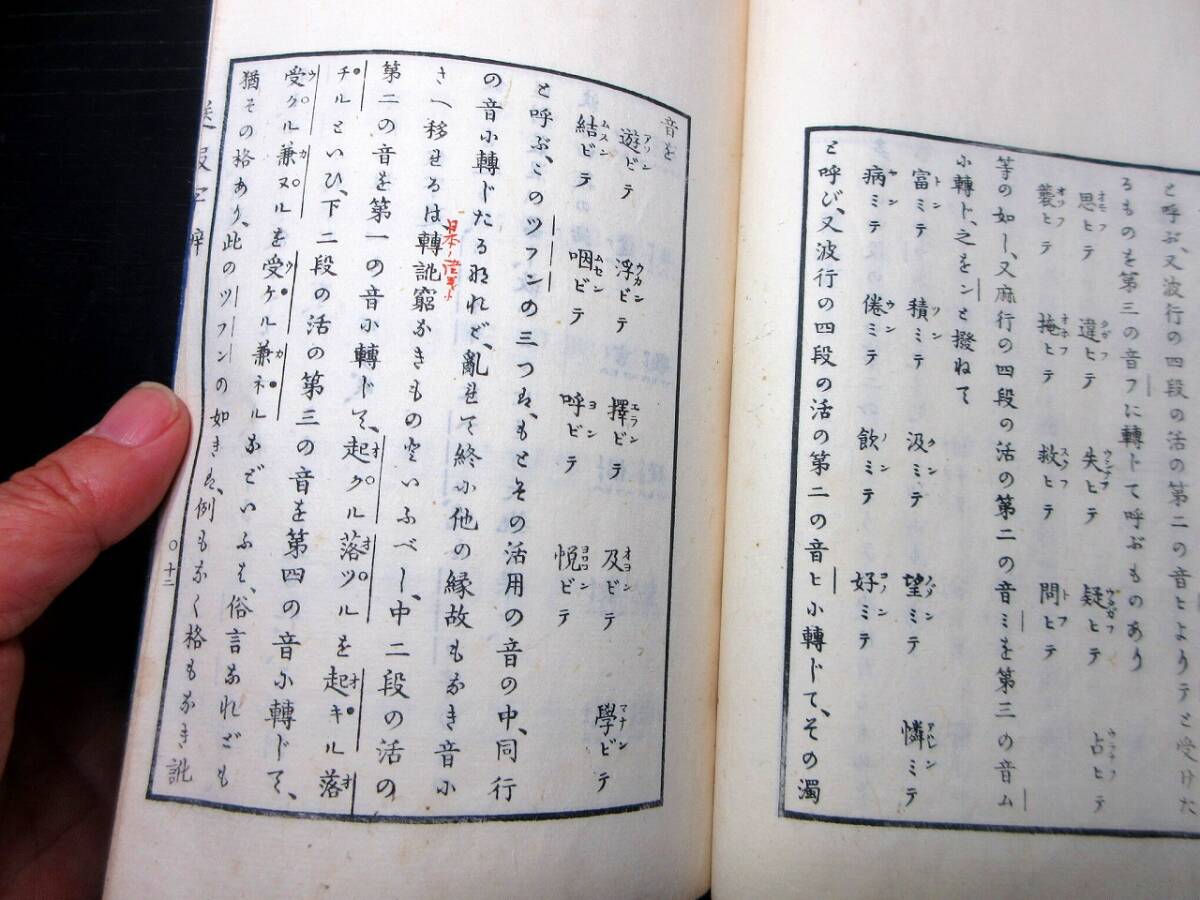 と呼ぶ、又波行の四段の活の第二の音ヒよりテと受けた
るものを第三の音フに轉じて呼ぶものあり
思ヒテ 違ヒテ 失ヒテ 疑ヒテ 占ヒテ
襲ヒテ 掩ヒテ 救ヒテ 問ヒテ
等の如し、又麻行の四段の活の第二の音ミを第三の音ム
小轉ト、之をンと撥ねて
富ミテ 積ミテ 汲ミテ 望ミテ 憐ミテ
病ミテ 倦ミテ 飲ミテ 好ミテ
と呼び、又波行の四段の活の第二の音ヒ小轉じて、その濁
音を
遊ビテ 浮ビテ 擇ビテ 及ビテ 學ビテ
結ビテ 咽ビテ 呼ビテ 悦ビテ
と呼ぶ、このツフンの三つハ、もとその活用の音の中、同行
の音小轉じたるなれど、亂せて終小他の縁故もなき音小
さへ移せるは轉訛窮なきものといふべし、中二段の活の
第二の音を第一の音小轉じて、起クル落ツルを起キル落
チルといひ、下二段の活の第三の音を第四の音小轉じて、
受クル兼ヌルを受ケル兼ネルなどいふハ、俗言なれども
猶その格あり、此のツフンの如きハ、例もなく格もなき訛
十二